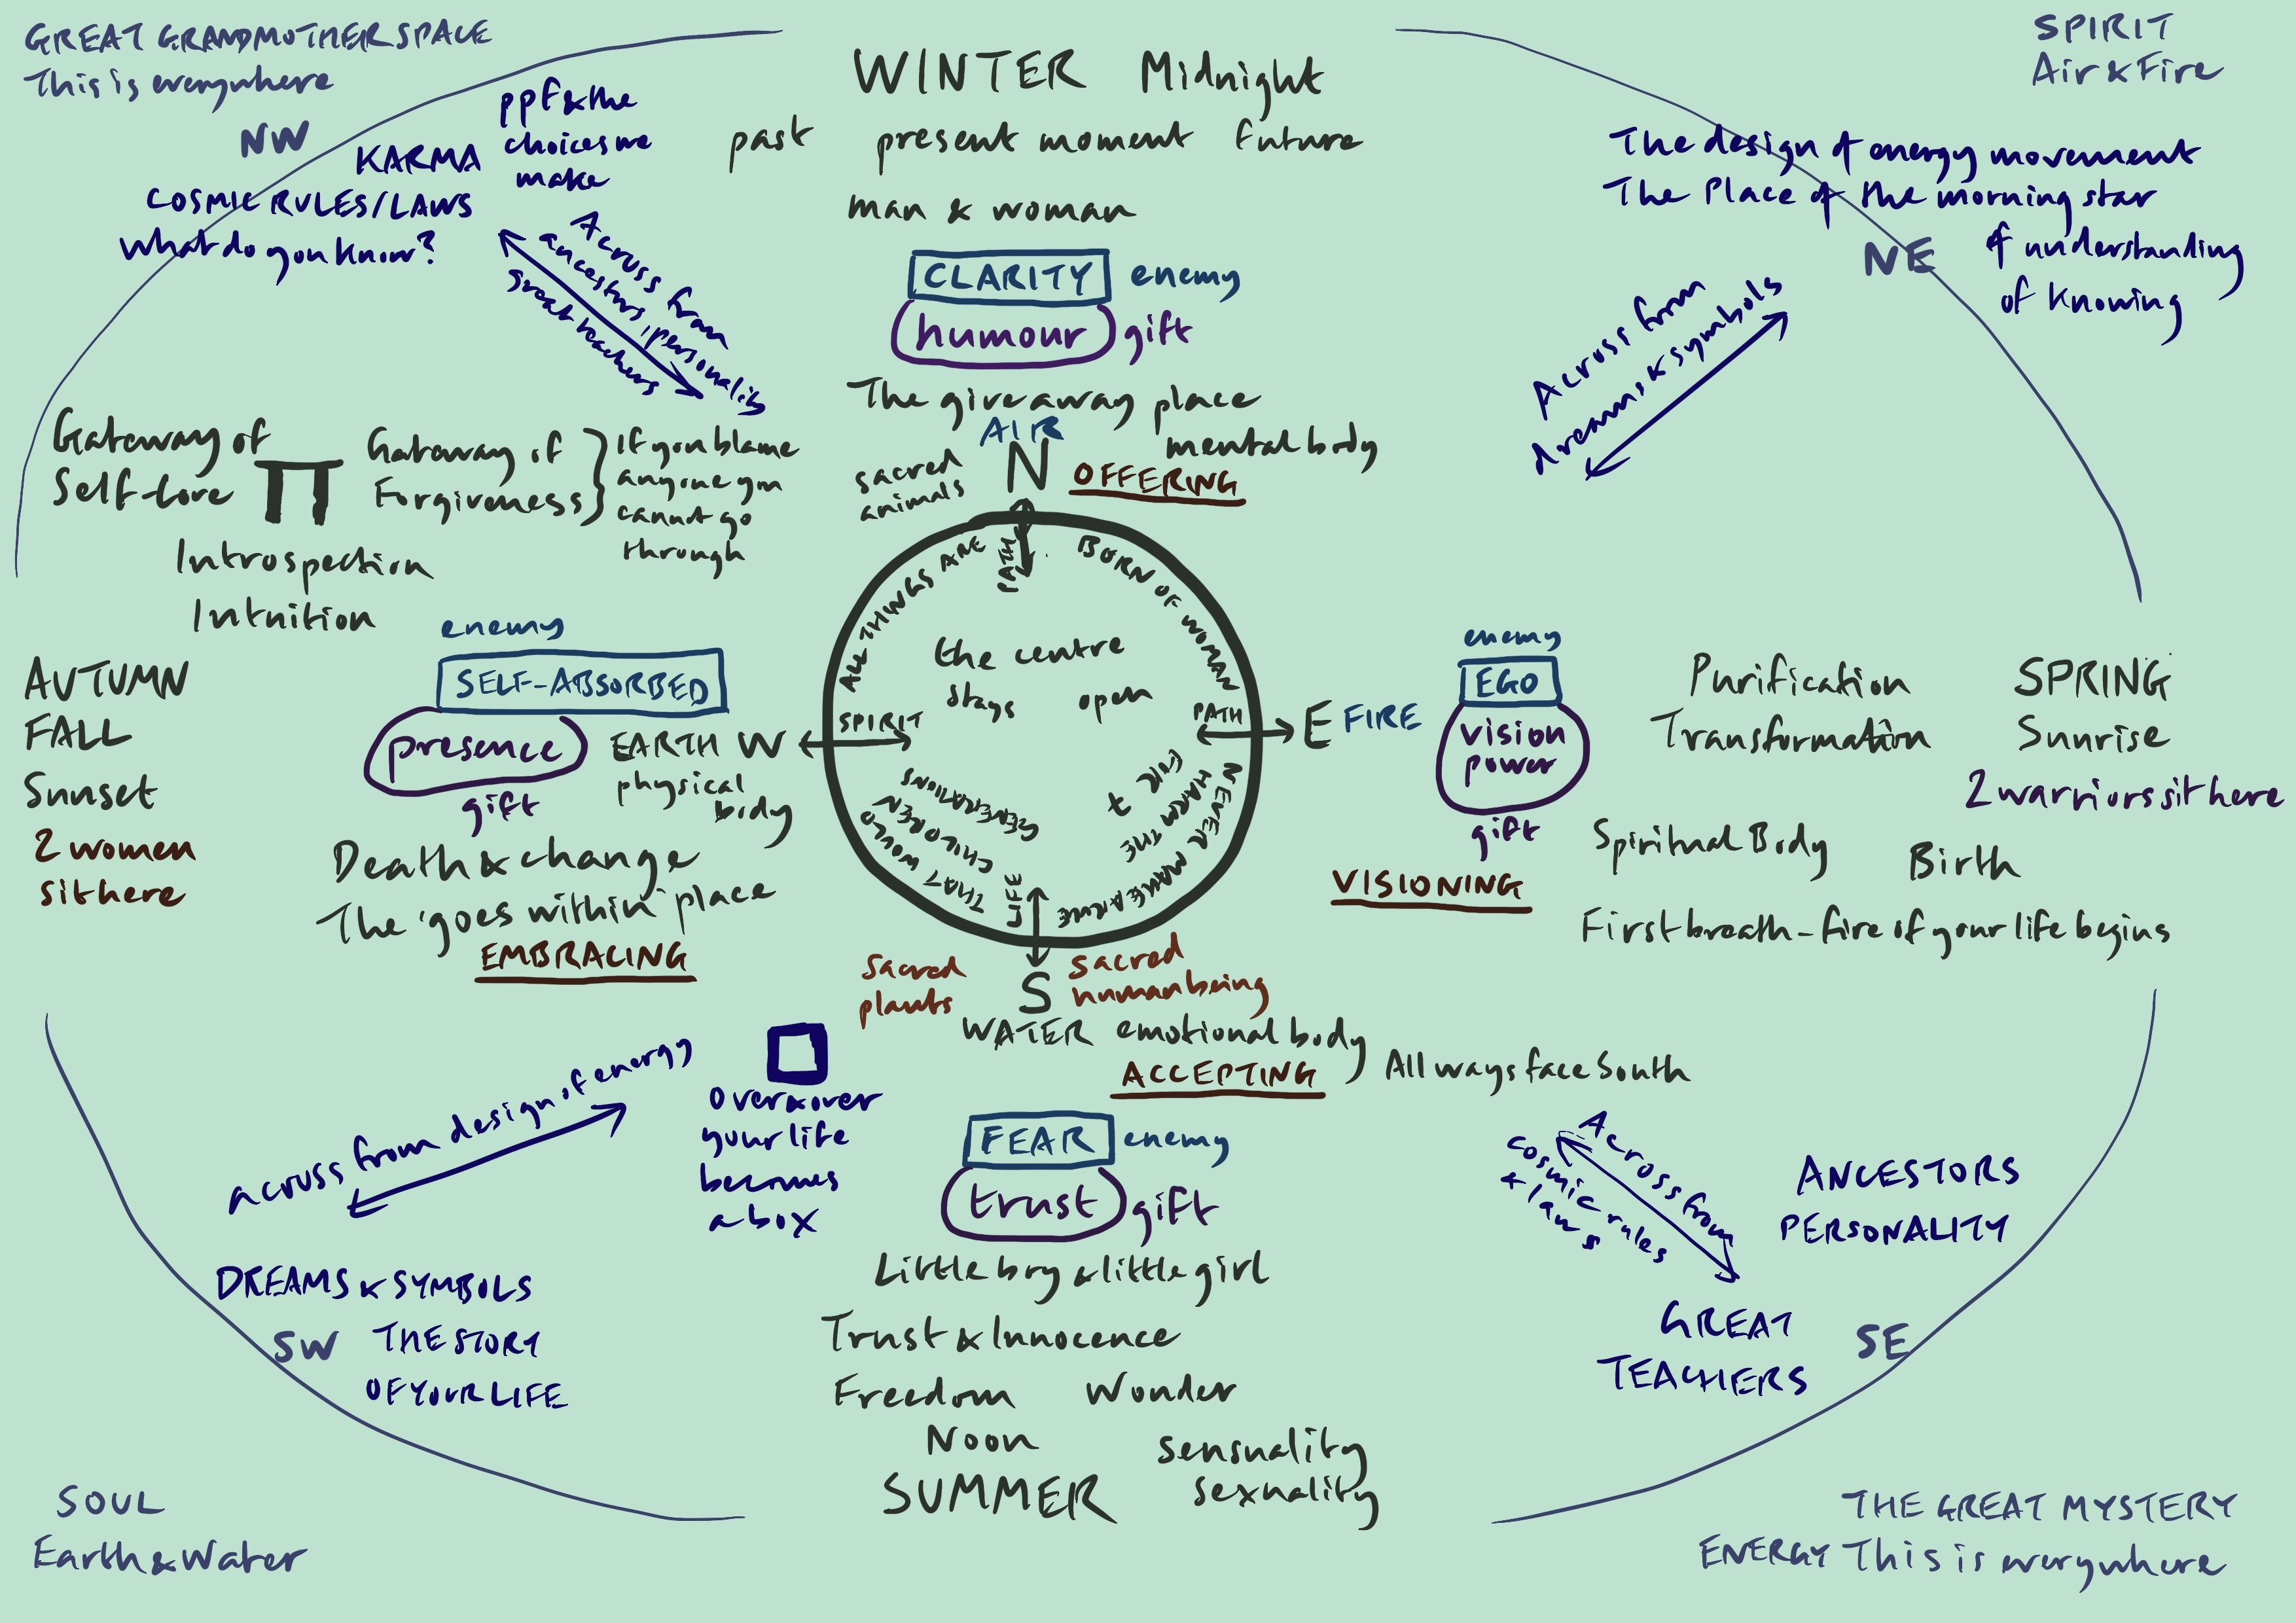 GREAT GRANDMOTHER SPACE
This is everywhere
NW
KARMA
ppf & the
choices we
make
COSMIC RULES/LAWS
What do you know?
Across from
ancestors, personality
great teachers
WINTER Midnight
past present moment future
man & woman
CLARITY enemy
humour gift
The give away place
mental body
AIR
sacred
animals
N
OFFERING
SPIRIT
Air & Fire
The design of energy movement
The Place of the morning star
NE
of understanding
of knowing
Across from
dreams & symbols
Gateway of
Self-love
Gateway of
Forgiveness
If you blame
anyone you
cannot go
through
Introspection
Intuition
AUTUMN
FALL
Sunset
2 women
sit here
enemy
SELF-ABSORBED
presence
gift
EARTH W
physical
body
Death & change
The 'goes within' place
EMBRACING
ALL THINGS ARE
BORN OF WOMAN
PATH
the centre
stays open
SPIRIT
PATH
LIFE
NEVER MAKE A RULE
THAT WOULD
HARM THE
CHILDREN
FOR 7
GENERATIONS
E FIRE
enemy
EGO
vision
power
gift
VISIONING
Purification
Transformation
SPRING
Sunrise
2 warriors sit here
Spiritual Body
Birth
First breath - fire of your life begins
sacred
plants
S
sacred
human being
WATER emotional body
ACCEPTING
All ways face South
FEAR enemy
trust gift
Little boy & little girl
Trust & Innocence
Freedom Wonder
Noon
sensuality
SUMMER
sexuality
across from design of energy
over & over
your life
becomes
a box
DREAMS & SYMBOLS
SW
THE STORY
OF YOUR LIFE
SOUL
Earth & Water
Across from
cosmic rules
& laws
ANCESTORS
PERSONALITY
GREAT
TEACHERS
SE
THE GREAT MYSTERY
ENERGY This is everywhere